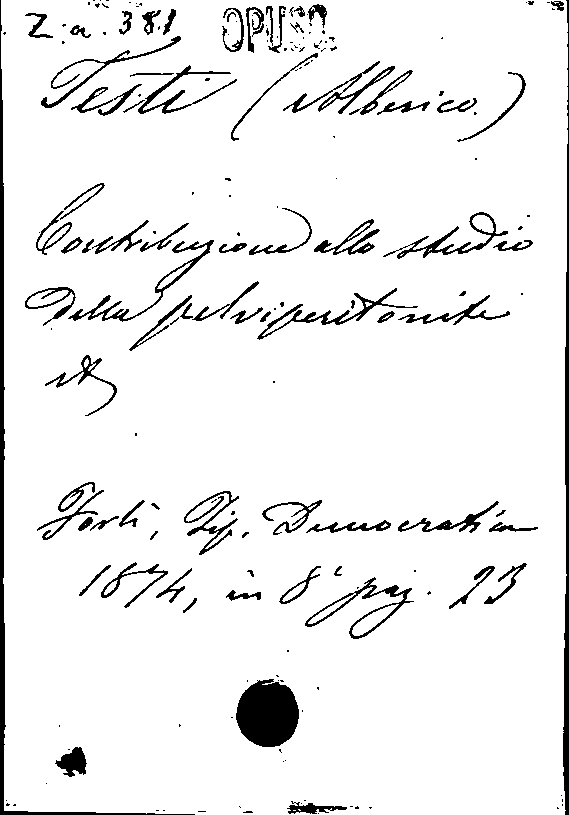 Z. a. 381 OPUSC.
Testi (Alberico)
Contribuzione allo studio
della pelviperitonite
Forlì, Tip. Democratica
1874, in 8° pag. 23